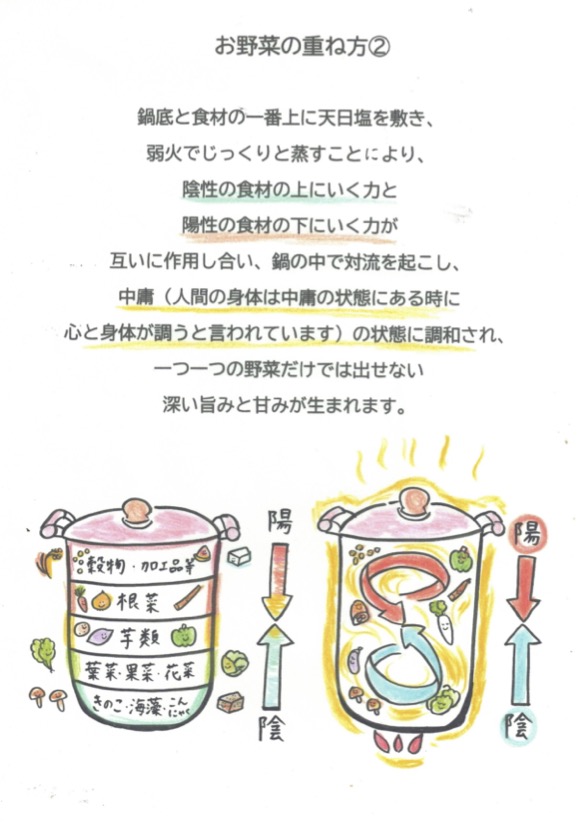 お野菜の重ね方②
鍋底と食材の一番上に天日塩を敷き、
弱火でじっくりと蒸すことにより、
陰性の食材の上にいく力と
陽性の食材の下にいく力が
互いに作用し合い、鍋の中で対流を起こし、
中庸（人間の身体は中庸の状態にある時に
心と身体が調うと言われています）の状態に調和され、
一つ一つの野菜だけでは出せない
深い旨みと甘みが生まれます。
穀物・加工品等
根菜
芋類
葉菜・果菜・花菜
きのこ・海藻・こんにゃく
陽
陰
陽
陰